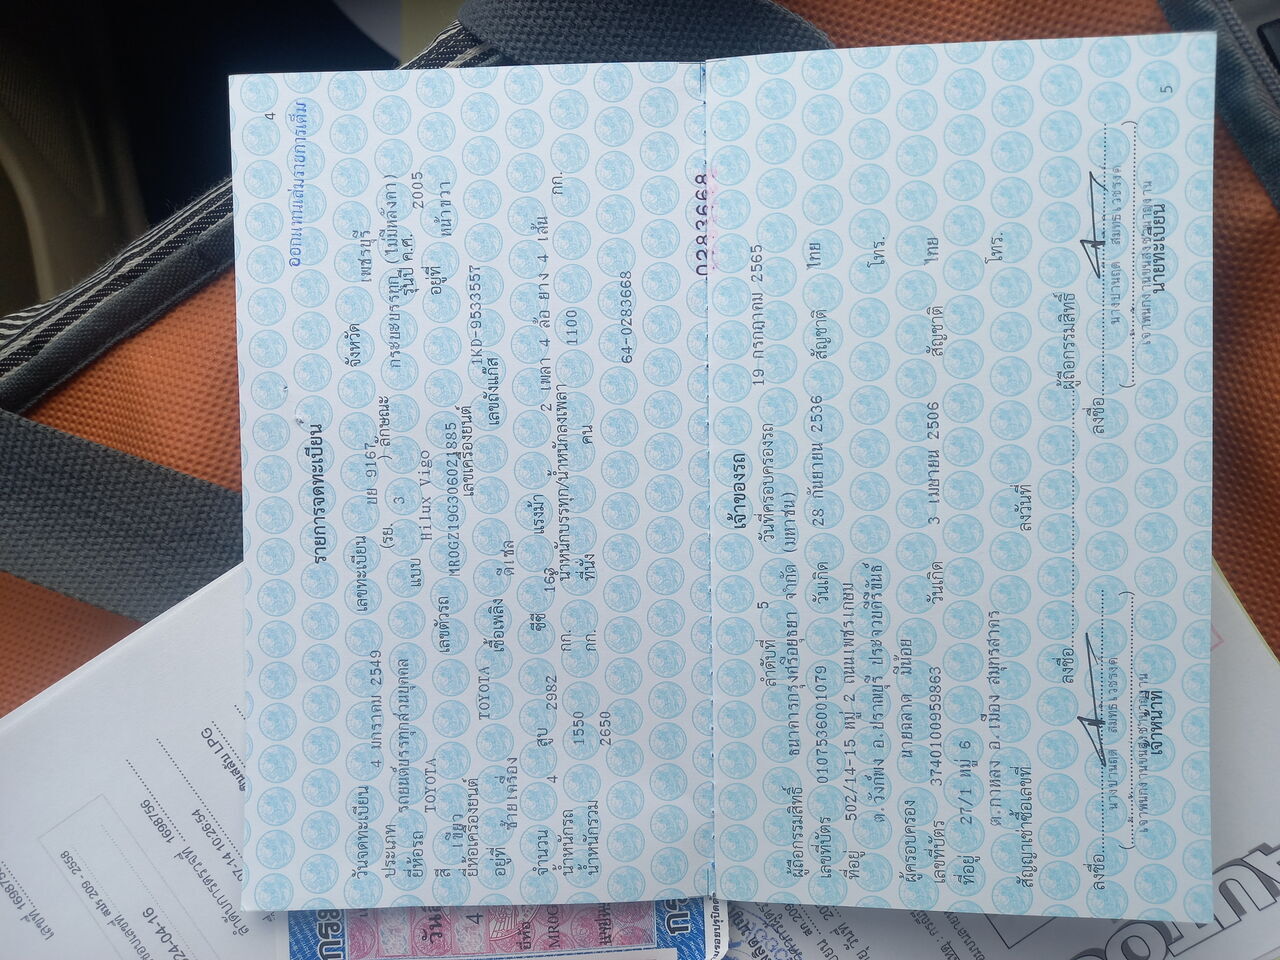 4
ออกแทนเล่มรายการเต็ม
รายการจดทะเบียน
วันจดทะเบียน 4 มกราคม 2549 เลขทะเบียน บย 9167 จังหวัด เพชรบุรี
ประเภท รถยนต์บรรทุกส่วนบุคคล (รย. 3 ) ลักษณะ กระบะบรรทุก(ไม่มีหลังคา)
ยี่ห้อรถ TOYOTA แบบ Hilux Vigo รุ่นปี ค.ศ. 2005
สี เขียว เลขตัวรถ MR0GZ19G306021885 อยู่ที่ หน้าขวา
ยี่ห้อเครื่องยนต์ TOYOTA เลขเครื่องยนต์ 1KD-9533557
อยู่ที่ ซ้ายเครื่อง เชื้อเพลิง ดีเซล เลขถังแก๊ส
จำนวน 4 สูบ 2982 ซีซี 163 แรงม้า 2 เพลา 4 ล้อ ยาง 4 เส้น
น้ำหนักรถ 1550 กก. น้ำหนักบรรทุก/น้ำหนักลงเพลา 1100 กก.
น้ำหนักรวม 2650 กก. ที่นั่ง คน
64-0283668
0283668
เจ้าของรถ
ลำดับที่ 5 วันที่ครอบครองรถ 19 กรกฎาคม 2565
ผู้ถือกรรมสิทธิ์ ธนาคารกรุงศรีอยุธยา จำกัด (มหาชน)
เลขที่บัตร 0107536001079 วันเกิด 28 กันยายน 2536 สัญชาติ ไทย
ที่อยู่ 502/14-15 หมู่ 2 ถนนเพชรเกษม
ต.วังก์พง อ.ปราณบุรี ประจวบคีรีขันธ์ โทร.
ผู้ครอบครอง นายฉลาด มีน้อย
เลขที่บัตร 3740100959863 วันเกิด 3 เมษายน 2506 สัญชาติ ไทย
ที่อยู่ 27/1 หมู่ 6
ต.กาหลง อ.เมือง สมุทรสาคร โทร.
สัญญาเช่าซื้อเลขที่ ลงวันที่
ลงชื่อ ผู้ถือกรรมสิทธิ์
ลงชื่อ ลงชื่อ
เจ้าหน้าที่ นายทะเบียน
5
1698756
2558
07-14 10:26:54